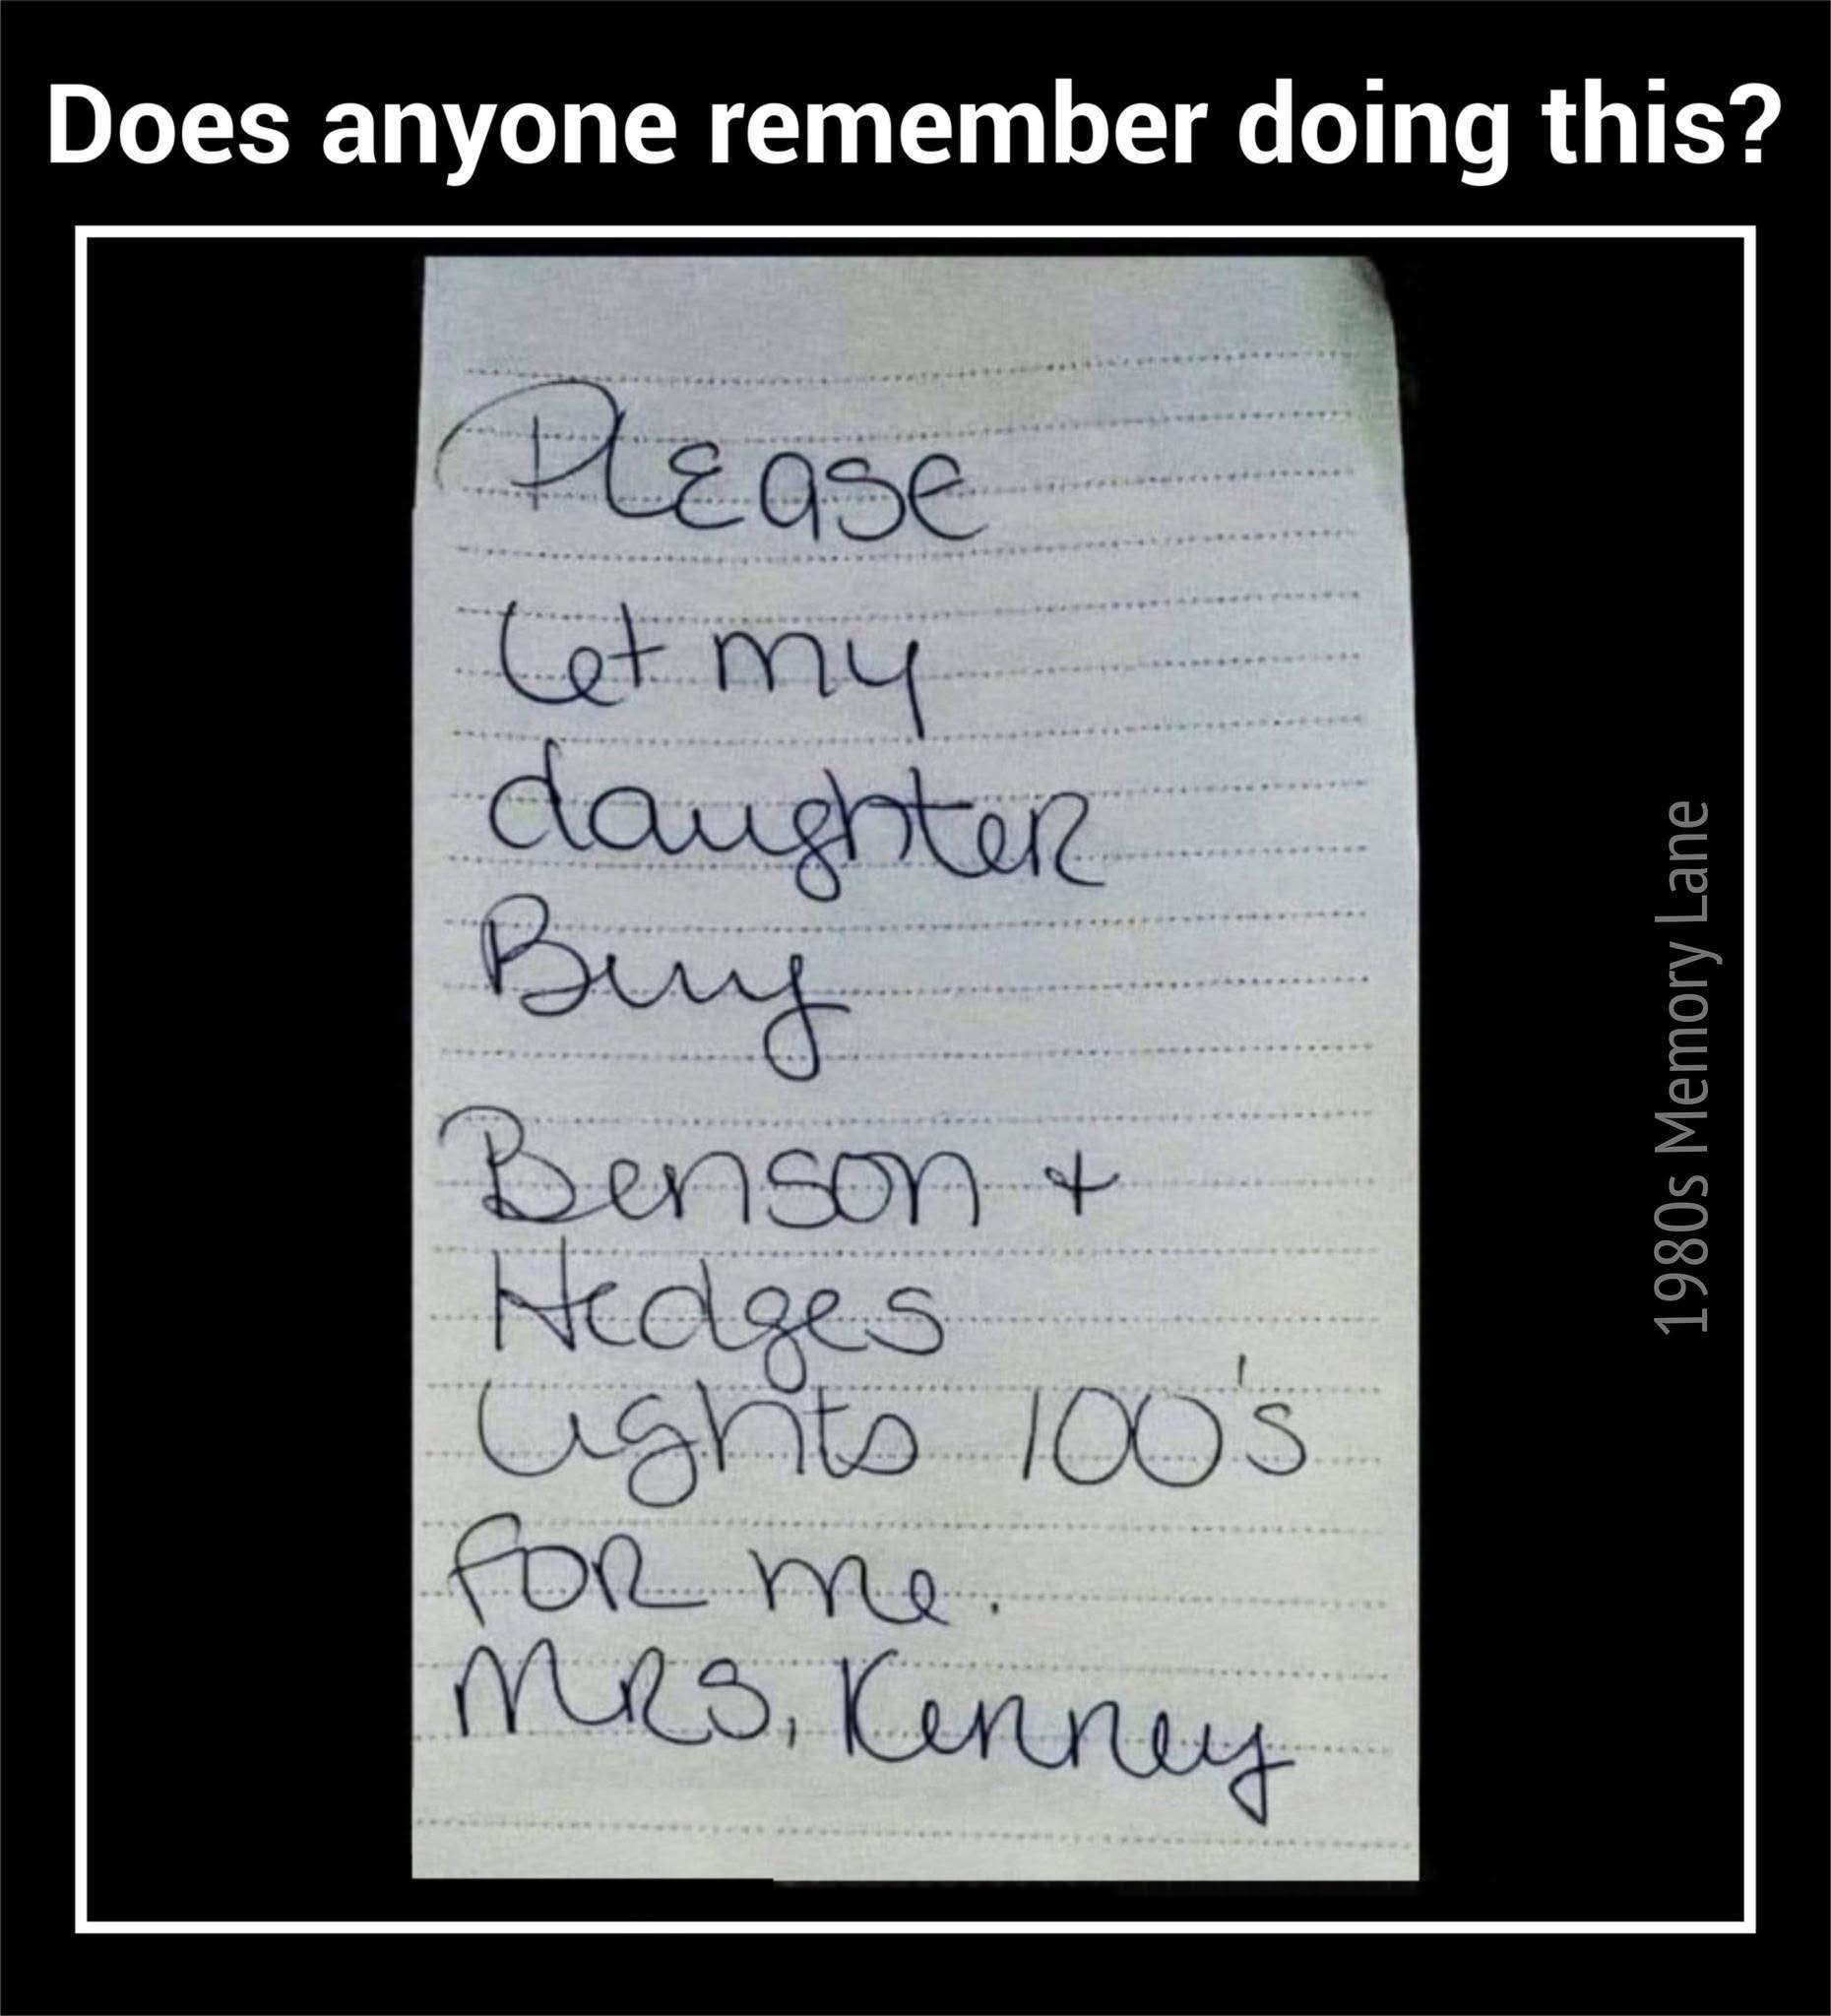 Does anyone remember doing this?
Please
Let my
daughter
Buy
Benson +
Hedges
Lights 100's
FOR me.
MRS. Kenney
1980s Memory Lane